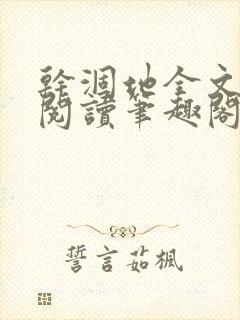 幹涸地全文
閱讀筆趣閣
誓言茹楓